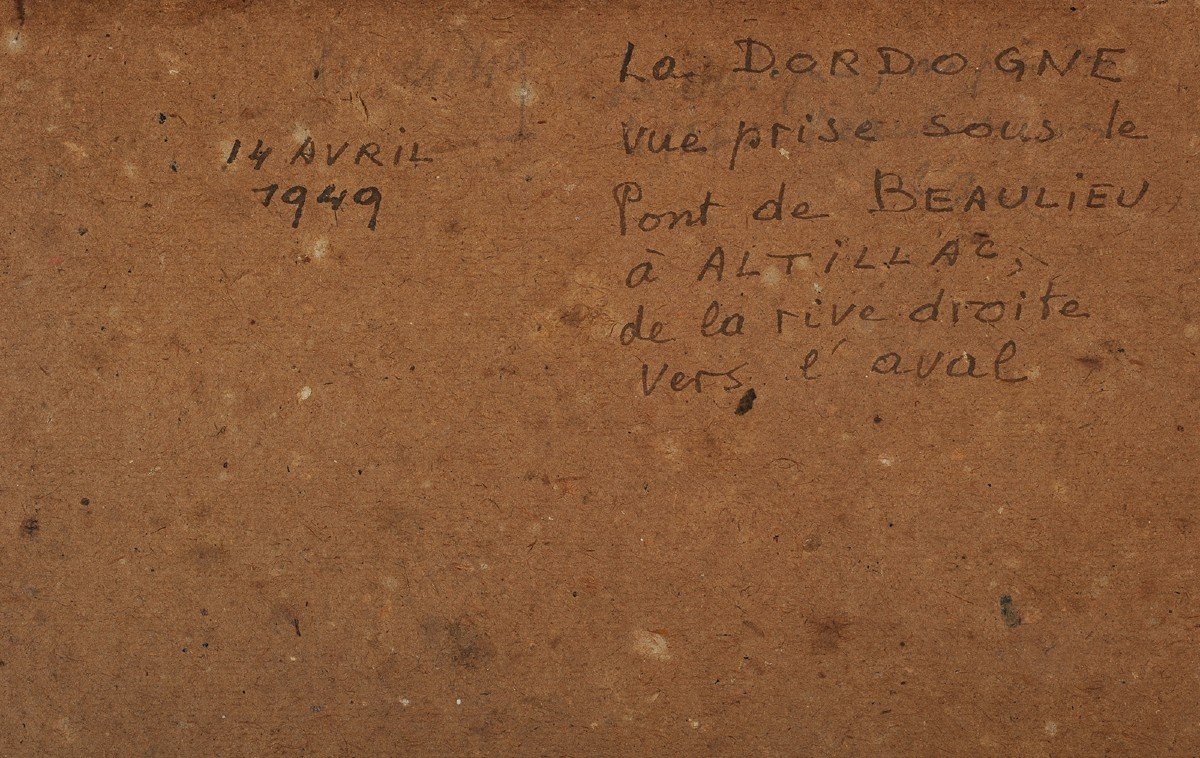 14 AVRIL
1949
La DORDOGNE
vue prise sous le
Pont de BEAULIEU
à ALTILLAC,
de la rive droite
vers l'aval